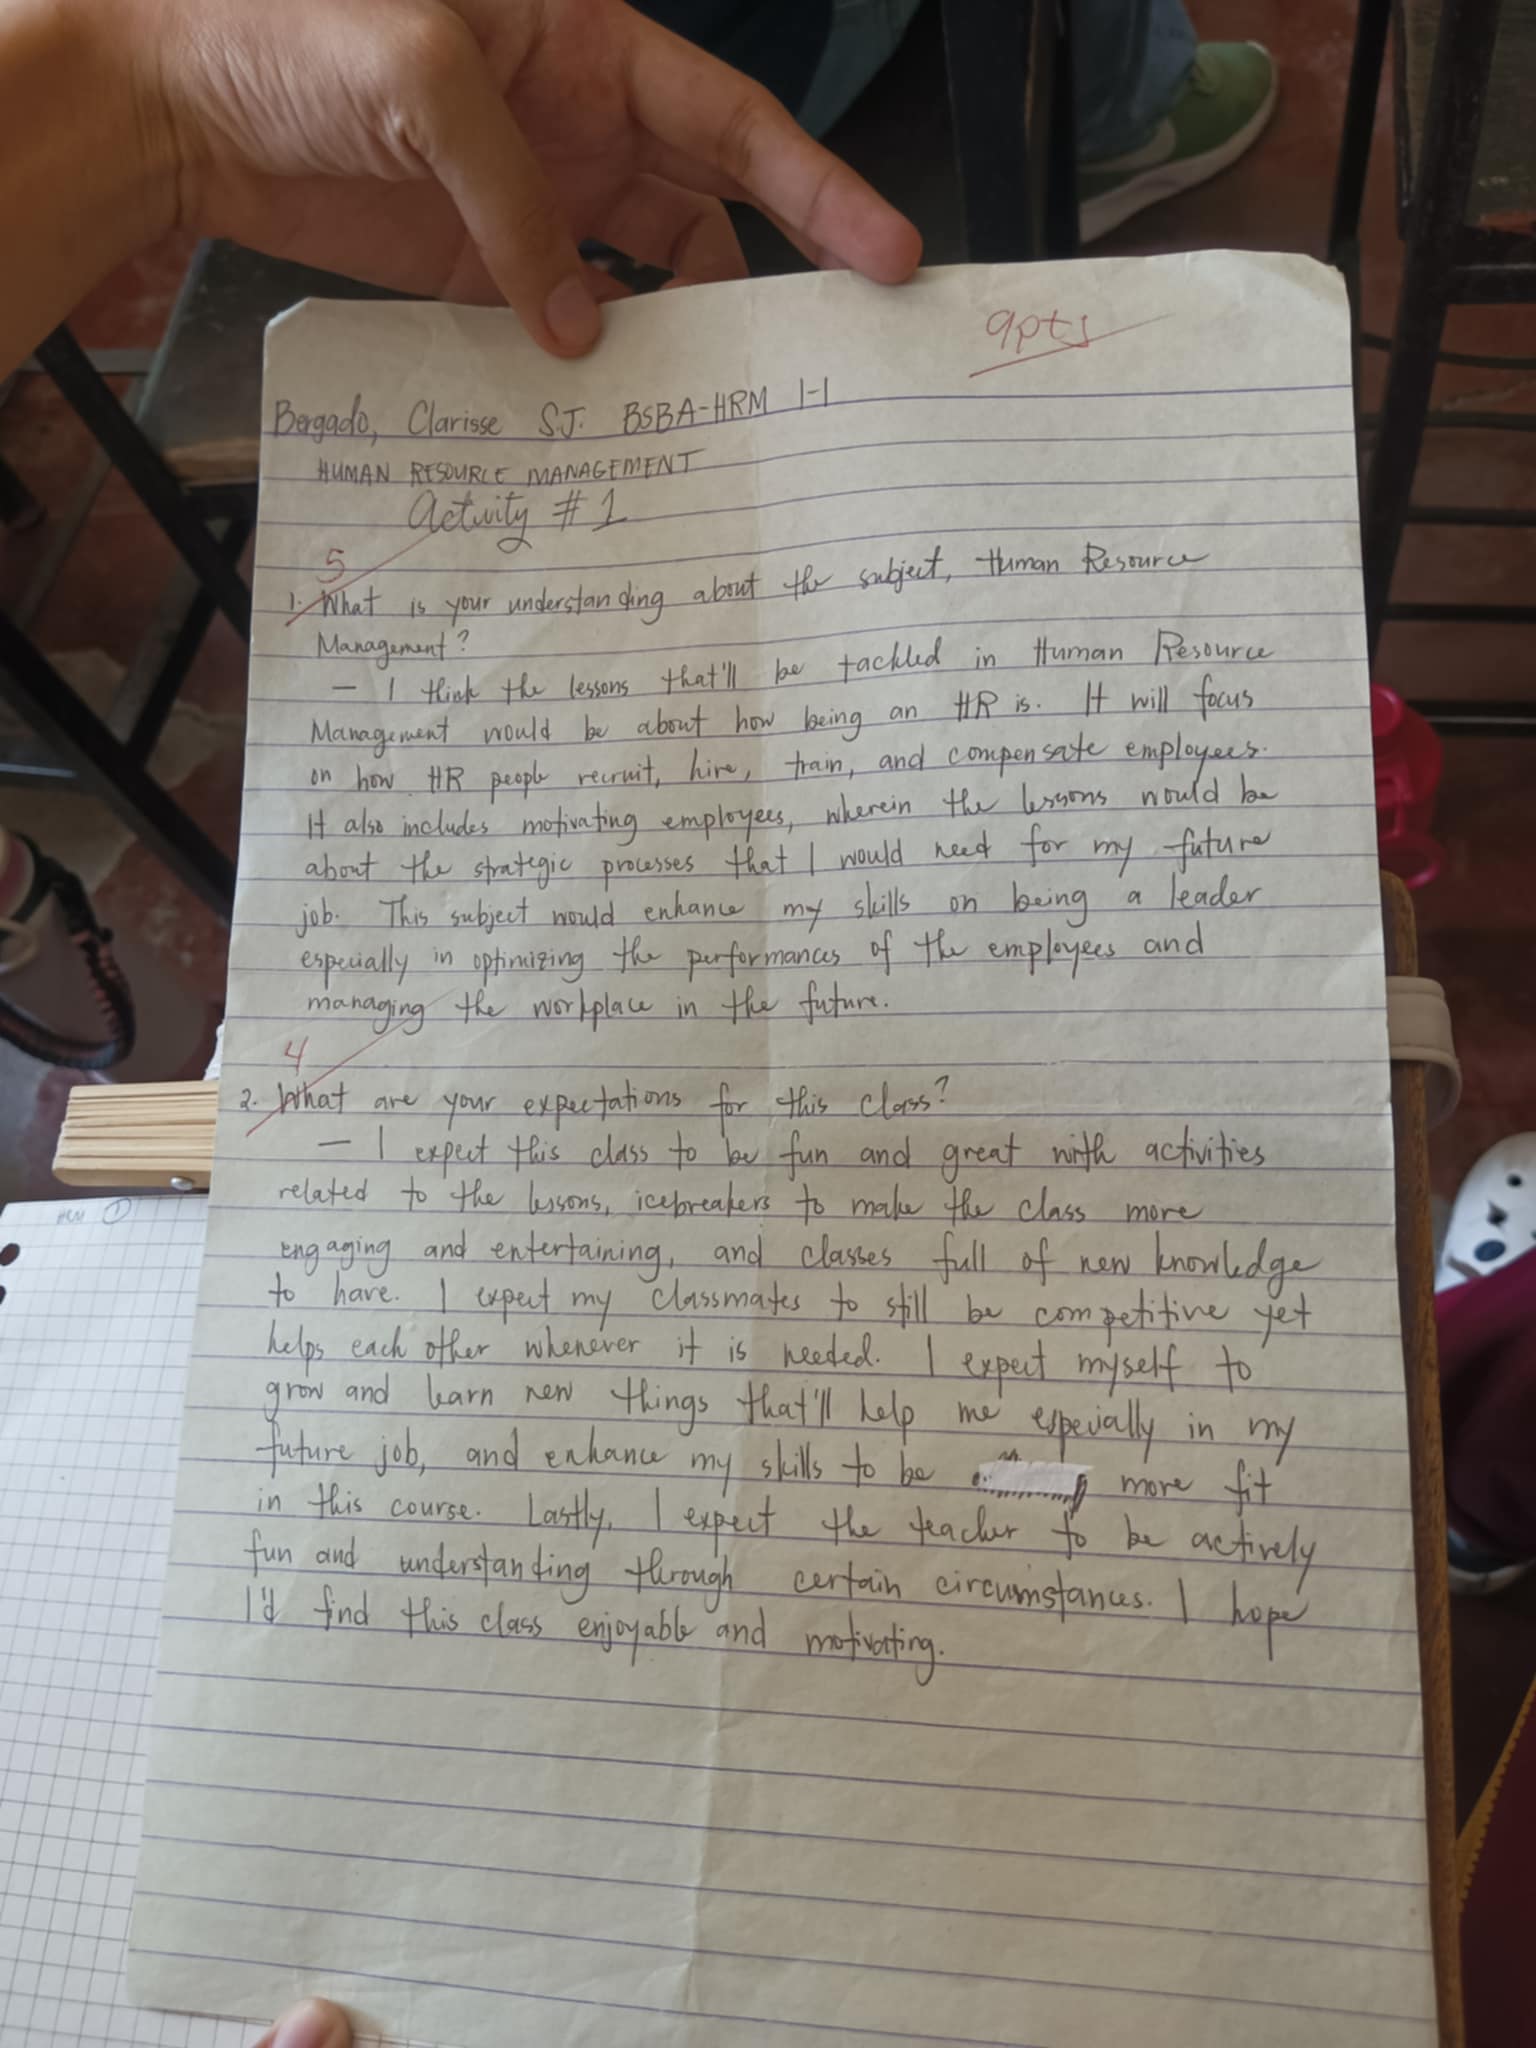 9pts
Bergado, Clarisse S.J. BSBA-HRM 1-1
HUMAN RESOURCE MANAGEMENT
Activity #1
5
1. What is your understanding about the subject, Human Resource
Management?
— I think the lessons that'll be tackled in Human Resource
Management would be about how being an HR is. It will focus
on how HR people recruit, hire, train, and compensate employees.
It also includes motivating employees, wherein the lessons would be
about the strategic processes that I would need for my future
job. This subject would enhance my skills on being a leader
especially in optimizing the performances of the employees and
managing the workplace in the future.
4
2. What are your expectations for this class?
— I expect this class to be fun and great with activities
related to the lessons, icebreakers to make the class more
engaging and entertaining, and classes full of new knowledge
to have. I expect my classmates to still be competitive yet
helps each other whenever it is needed. I expect myself to
grow and learn new things that'll help me especially in my
future job, and enhance my skills to be more fit
in this course. Lastly, I expect the teacher to be actively
fun and understanding through certain circumstances. I hope
I'd find this class enjoyable and motivating.
HRM 1